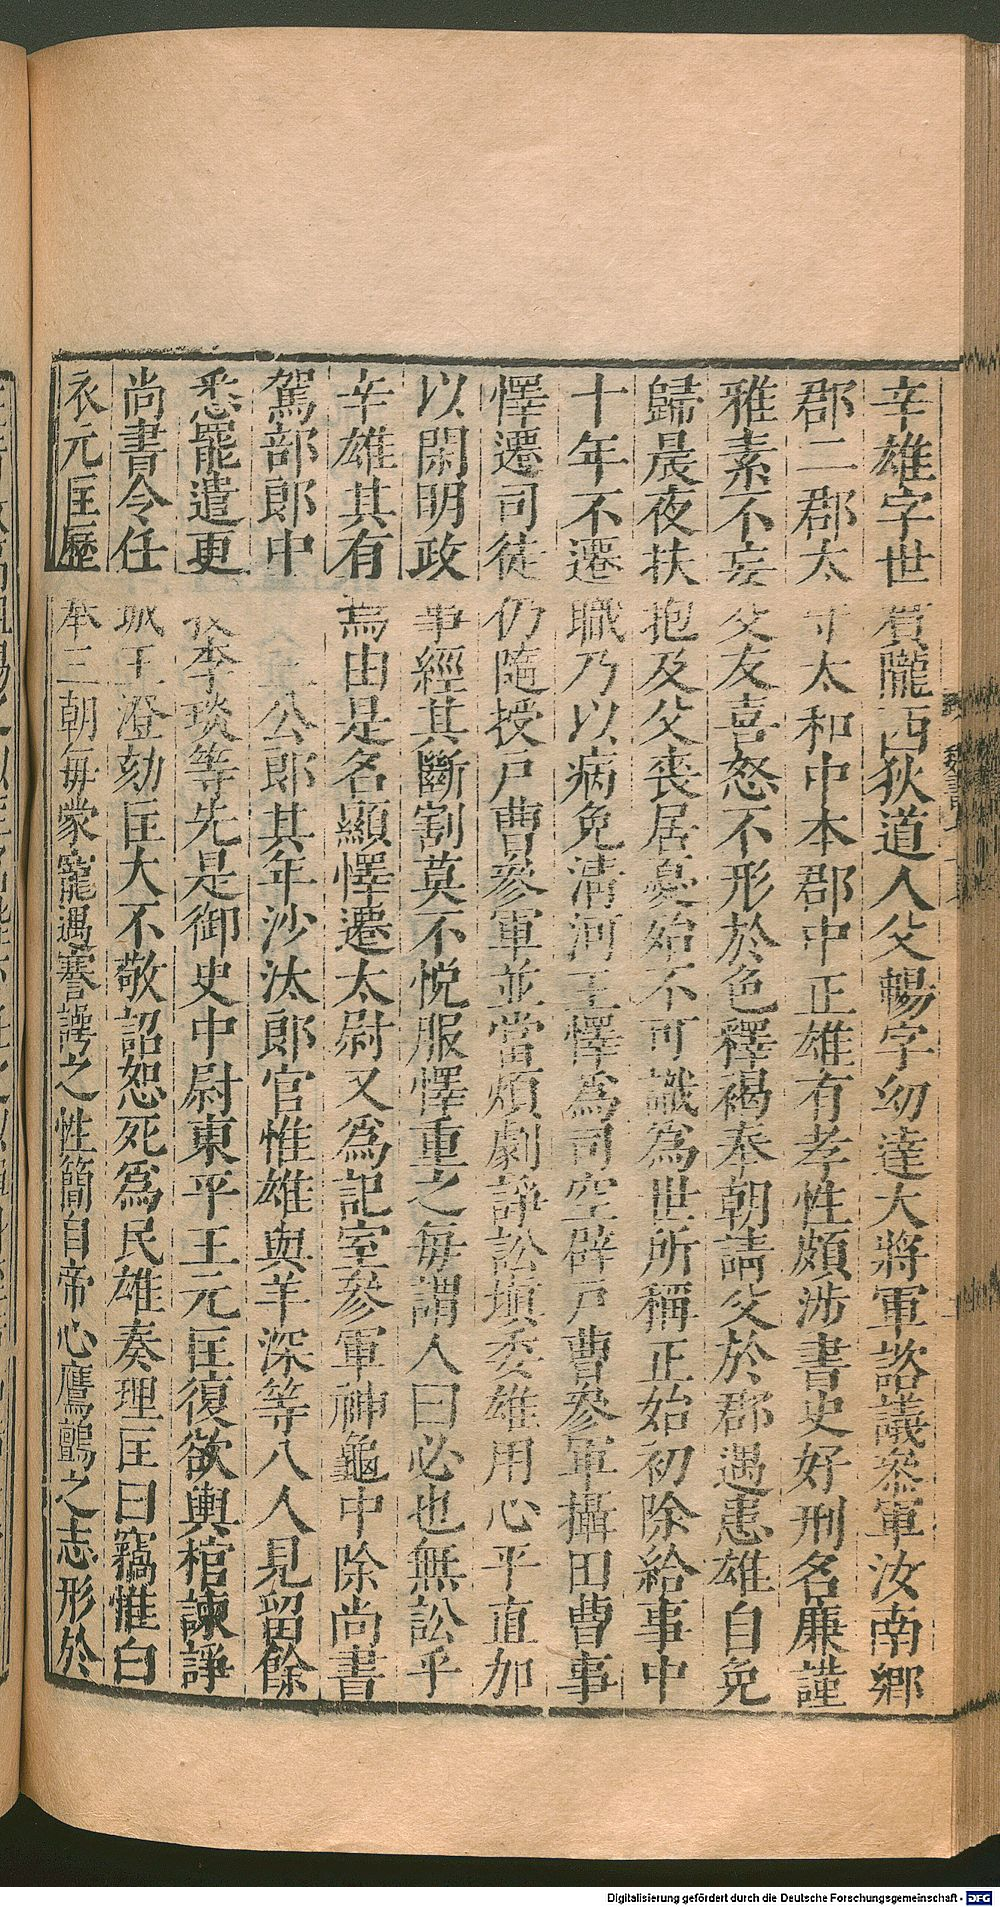 辛雄字世賓隴西狄道人父暢字幼達大將軍諮議參軍汝南鄉
郡二郡太守太和中本郡中正雄有孝性頗涉書史好刑名廉謹
雅素不妄交友喜怒不形於色釋褐奉朝請父於郡遇患雄自免
歸晨夜扶抱及父喪居憂殆不可識為世所稱正始初除給事中
十年不遷職乃以病免清河王懌為司空辟戶曹參軍攝田曹事
懌遷司徒仍隨授戶曹參軍並當煩劇諍訟塡委雄用心平直加
以閑明政事經其斷割莫不悦服懌重之每謂人曰必也無訟乎
辛雄其有焉由是名顯懌遷太尉又為記室參軍神龜中除尚書
駕部郎中公郎其年沙汰郎官惟雄與羊深等八人見留餘
悉罷遣更李琰等先是御史中尉東平王元匡復欲輿棺諫諍
尚書令任城王澄劾匡大不敬詔恕死為民雄奏理匡曰竊惟白
衣元匡歷奉三朝每蒙寵遇謇諤之性簡自帝心鷹鸇之志形於
魏書
Digitalisierung gefördert durch die Deutsche Forschungsgemeinschaft - DFG